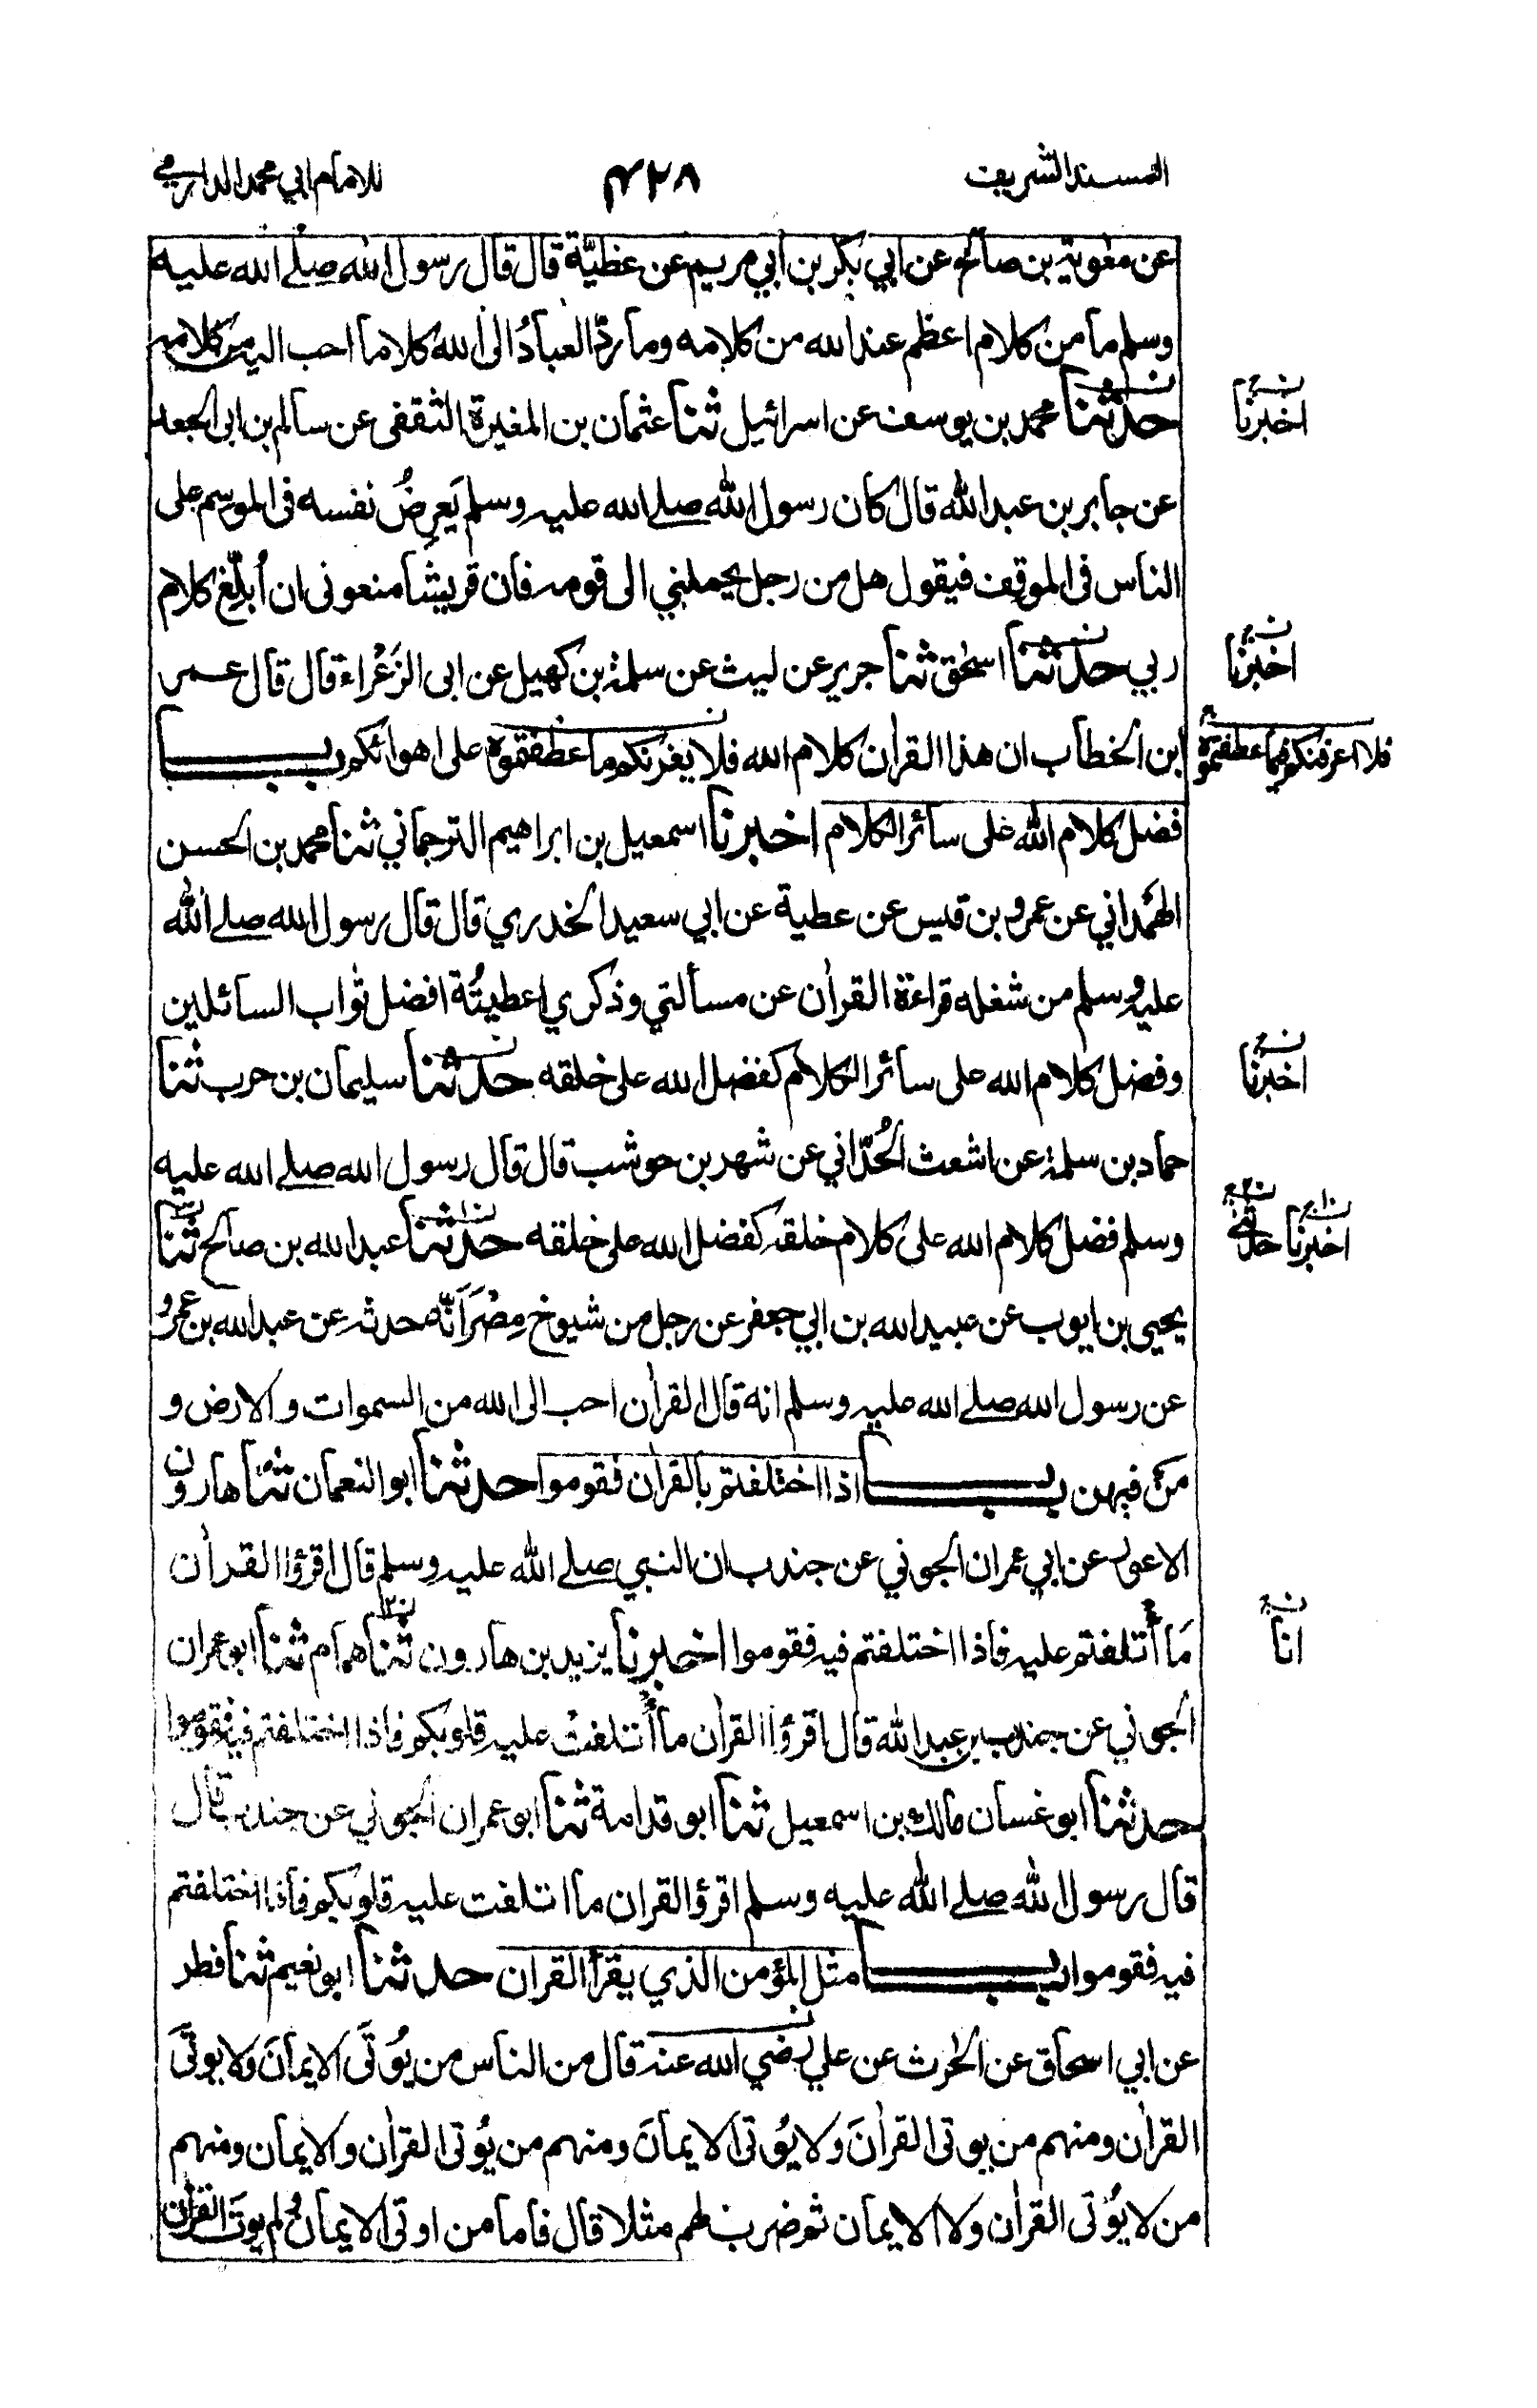 المسند الشريف ۴۲۸ للامام ابي محمد الدارمي
عن معوية بن صالح عن ابي بكر بن ابي مريم عن عطيّة قال قال رسول الله صلے الله عليه
وسلم ما من كلام اعظم عند الله من كلامه وما ردّ العبادُ الى الله كلاما احب اليه من كلامه
حدثنا محمد بن يوسف عن اسرائيل ثنا عثمان بن المغيرة الثقفى عن سالم بن ابى الجعد
اخبرنا
عن جابر بن عبد الله قال كان رسول الله صلے الله عليه وسلم يَعرِضُ نفسه فى الموسم على
الناس فى الموقف فيقول هل من رجل يحملني الى قومه فان قريشا منعونى ان اُبلّغ كلام
ربي حدثنا اسحٰق ثنا جرير عن ليث عن سلمة بن كهيل عن ابى الزَعْراء قال قال عمر
اخبرنا
ابن الخطاب ان هذا القراٰن كلام الله فلا يغرنكم ما عطفتموه على اهوائكم بــاب
فلا اعرفنكم فيما عطفتموه
فضل كلام الله على سائر الكلام اخبرنا اسمعيل بن ابراهيم الترجماني ثنا محمد بن الحسن
الهَمْداني عن عمرو بن قيس عن عطية عن ابي سعيد الخدري قال قال رسول الله صلے الله
عليه وسلم من شغله قراءة القراٰن عن مسألتي وذكري اعطيتُه افضل ثواب السائلين
وفضل كلام الله على سائر الكلام كفضل الله على خلقه حدثنا سليمان بن حرب ثنا
اخبرنا
حماد بن سلمة عن اشعث الحُدّاني عن شهر بن حوشب قال قال رسول الله صلے الله عليه
وسلم فضل كلام الله على كلام خلقه كفضل الله على خلقه حدثنا عبد الله بن صالح ثنا
اخبرنا حدثني
يحيى بن ايوب عن عبيد الله بن ابي جعفر عن رجل من شيوخ مِصْرَ اَنّه حدثه عن عبد الله بن عمرو
عن رسول الله صلے الله عليه وسلم انه قال القراٰن احب الى الله من السموات والارض و
مَنْ فيهن بــاب اذا اختلفتم بالقراٰن فقوموا حدثنا ابو النعمان ثنا هارون
الاعور عن ابي عمران الجوني عن جندب ان النبي صلے الله عليه وسلم قال اقرؤا القراٰن
مَا أْتلفتم عليه فاذا اختلفتم فيه فقوموا اخبرنا يزيد بن هارون ثنا همام ثنا ابو عمران
انا
الجوني عن جندب بن عبد الله قال اقرؤا القراٰن ما أْتلفتْ عليه قلوبكم فاذا اختلفتم فيه فقوموا
حدثنا ابو غسان مالك بن اسمعيل ثنا ابو قدامة ثنا ابو عمران الجوني عن جندب قال
قال رسول الله صلے الله عليه وسلم اقرؤ القران ما ائتلفت عليه قلوبكم فاذا اختلفتم
فيه فقوموا بــاب مثل المؤمن الذي يقرأ القران حدثنا ابو نعيم ثنا فطر
عن ابي اسحاق عن الحٰرث عن علي رضي الله عنه قال من الناس من يُوتَى الايمانَ ولا يوتَى
القراٰن ومنهم من يوتى القراٰنَ ولا يُوتى الايمانَ ومنهم من يُوتى القراٰن والايمان ومنهم
من لا يُوتى القراٰن ولا الايمان ثم ضرب لهم مثلا قال فاما من اوتى الايمان ولم يوتَ القراٰن